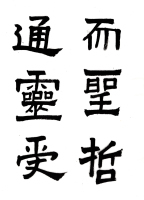 而聖哲
通靈受